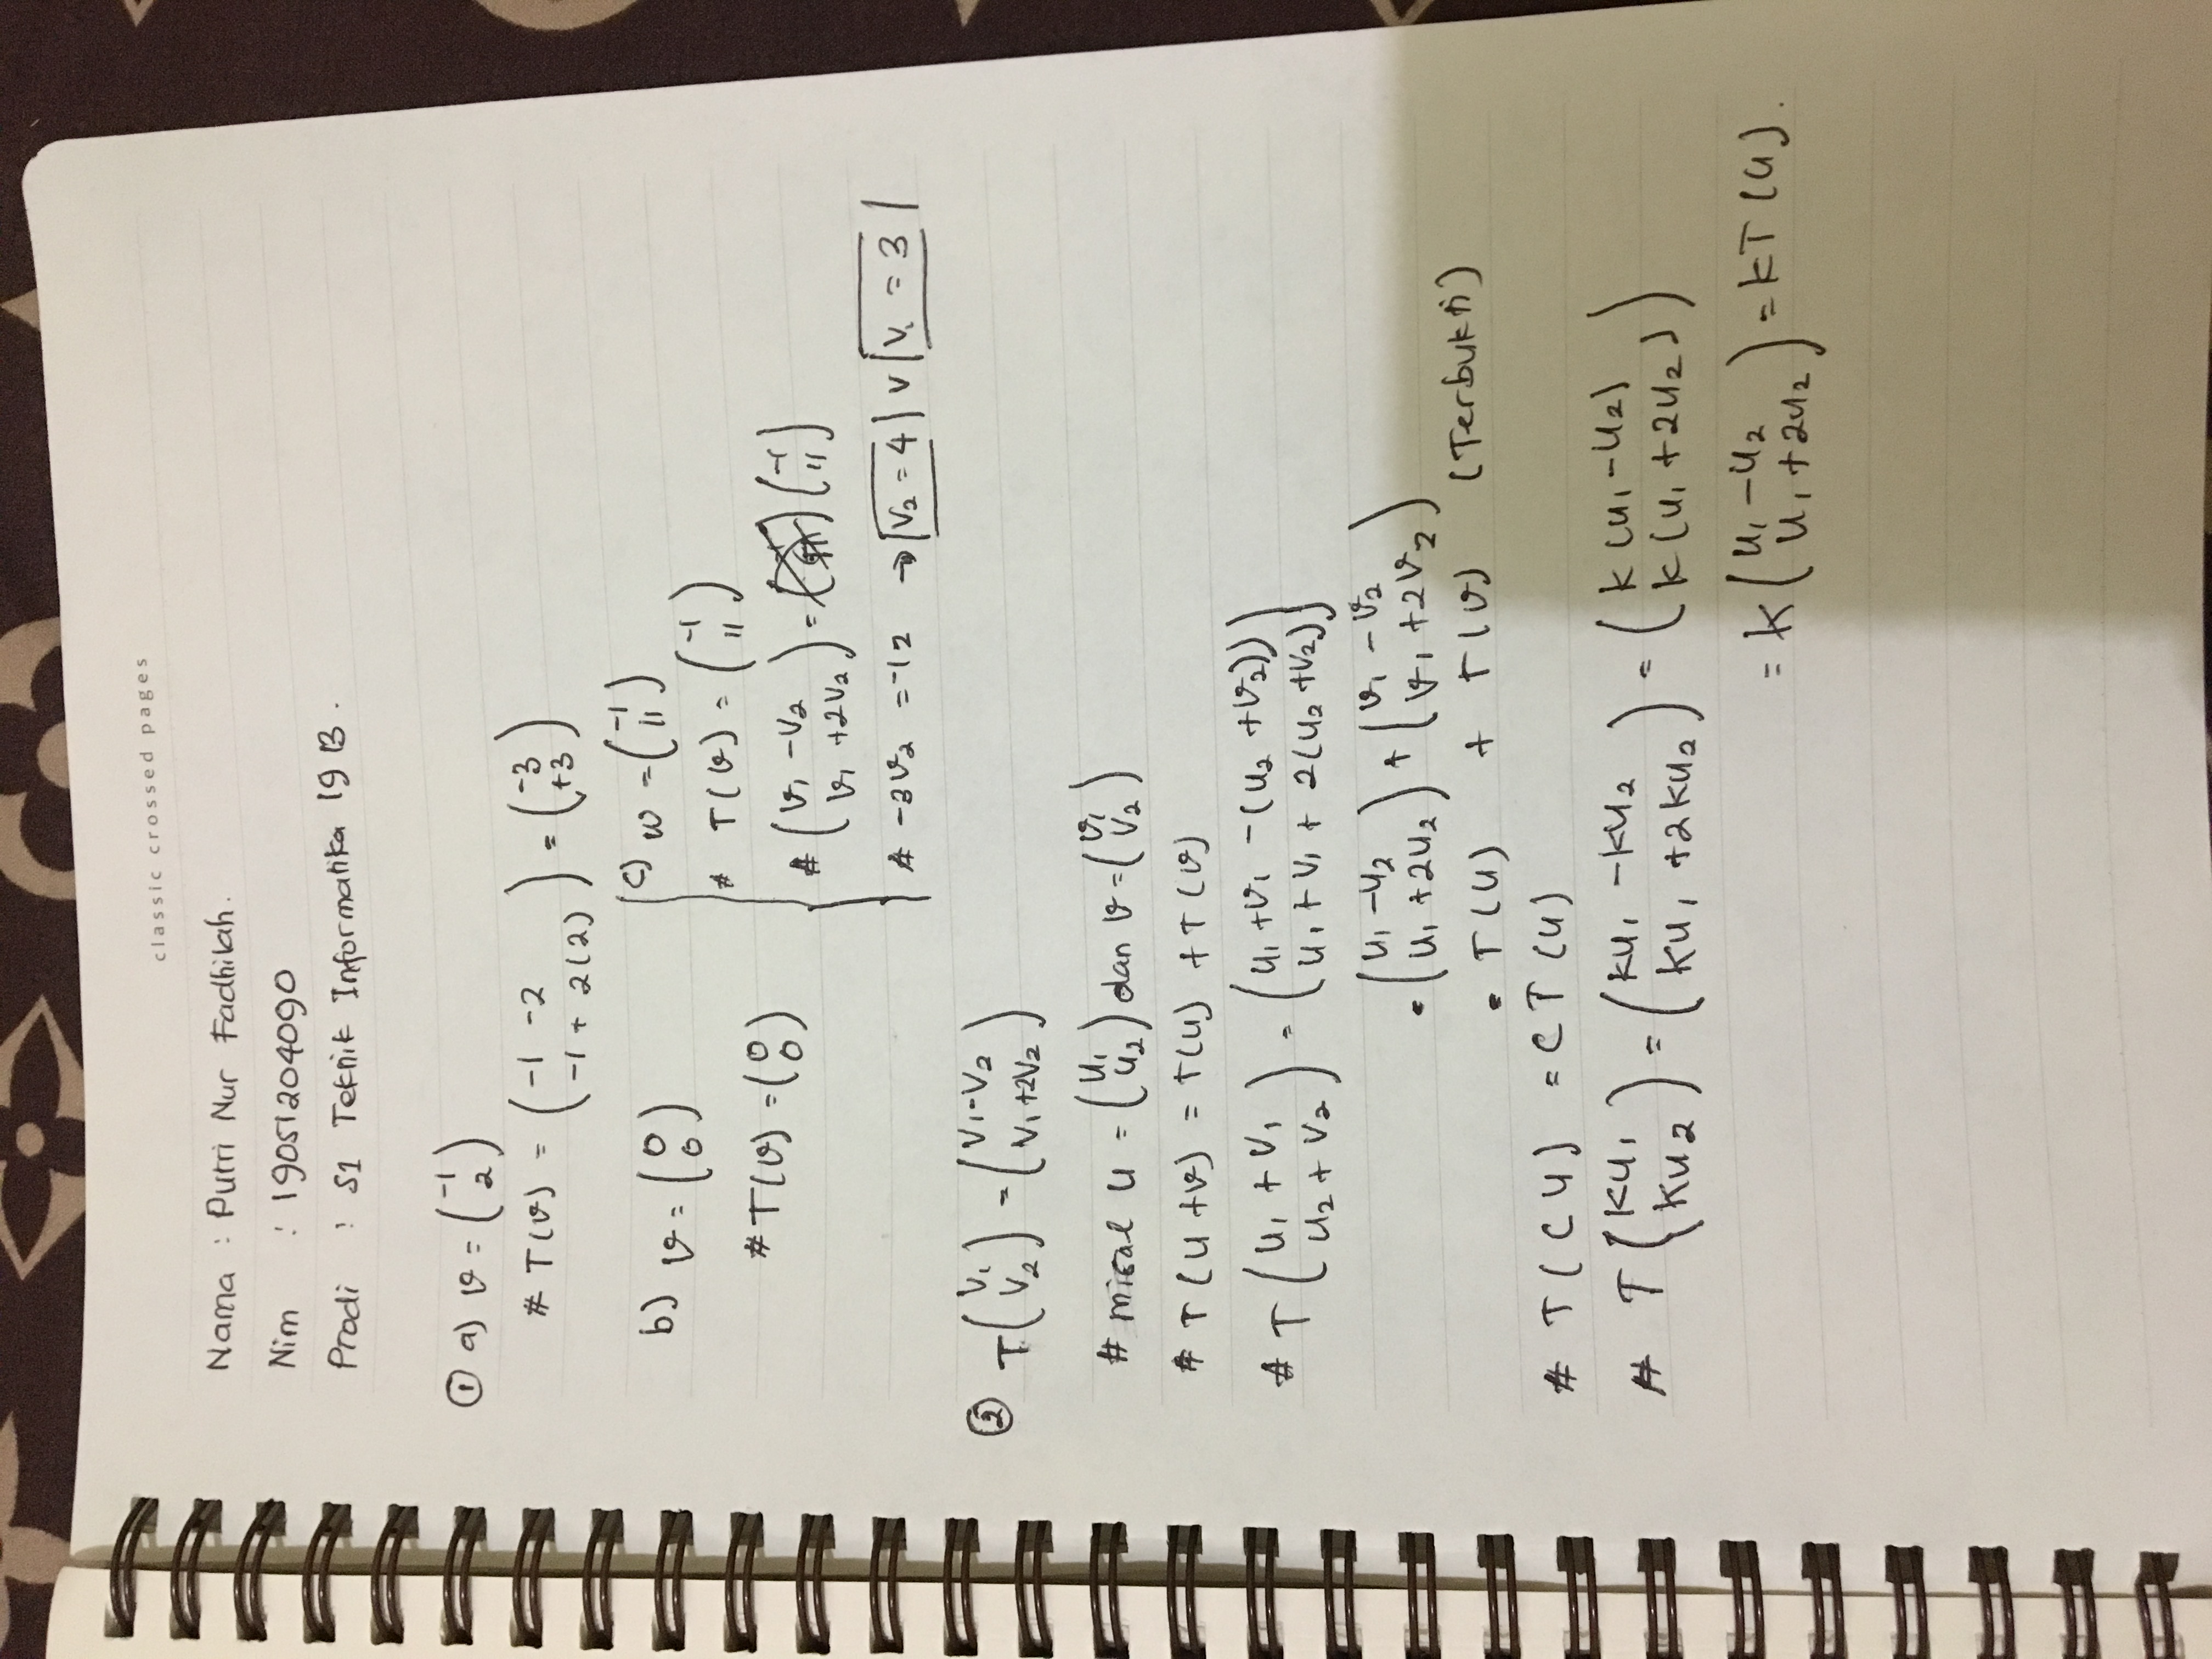 classic crossed pages
Nama : Putri Nur Fadhilah.
Nim : 19051204090
Prodi : S1 Teknik Informatika 19 B.
① a) v = (-1 2)
# T(v) = (-1 -2 -1 + 2(2)) = (-3 +3)
b) v = (0 0)
# T(v) = (0 0)
c) w = (-1 11)
# T(v) = (-1 11)
# (v₁ - v₂ v₁ + 2v₂) = (-1 11)
# -3v₂ = -12 → |v₂ = 4| v |v₁ = 3|
② T(v₁ v₂) = (v₁ - v₂ v₁ + 2v₂)
# misal u = (u₁ u₂) dan v = (v₁ v₂)
# T(u + v) = T(u) + T(v)
# T(u₁ + v₁ u₂ + v₂) = (u₁ + v₁ - (u₂ + v₂)) u₁ + v₁ + 2(u₂ + v₂))
= (u₁ - u₂ u₁ + 2u₂) + (v₁ - v₂ v₁ + 2v₂)
= T(u) + T(v) (Terbukti)
# T(Cu) = CT(u)
# T(ku₁ ku₂) = (ku₁ - ku₂ ku₁ + 2ku₂) = (k(u₁ - u₂) k(u₁ + 2u₂))
= k(u₁ - u₂ u₁ + 2u₂) = kT(u).